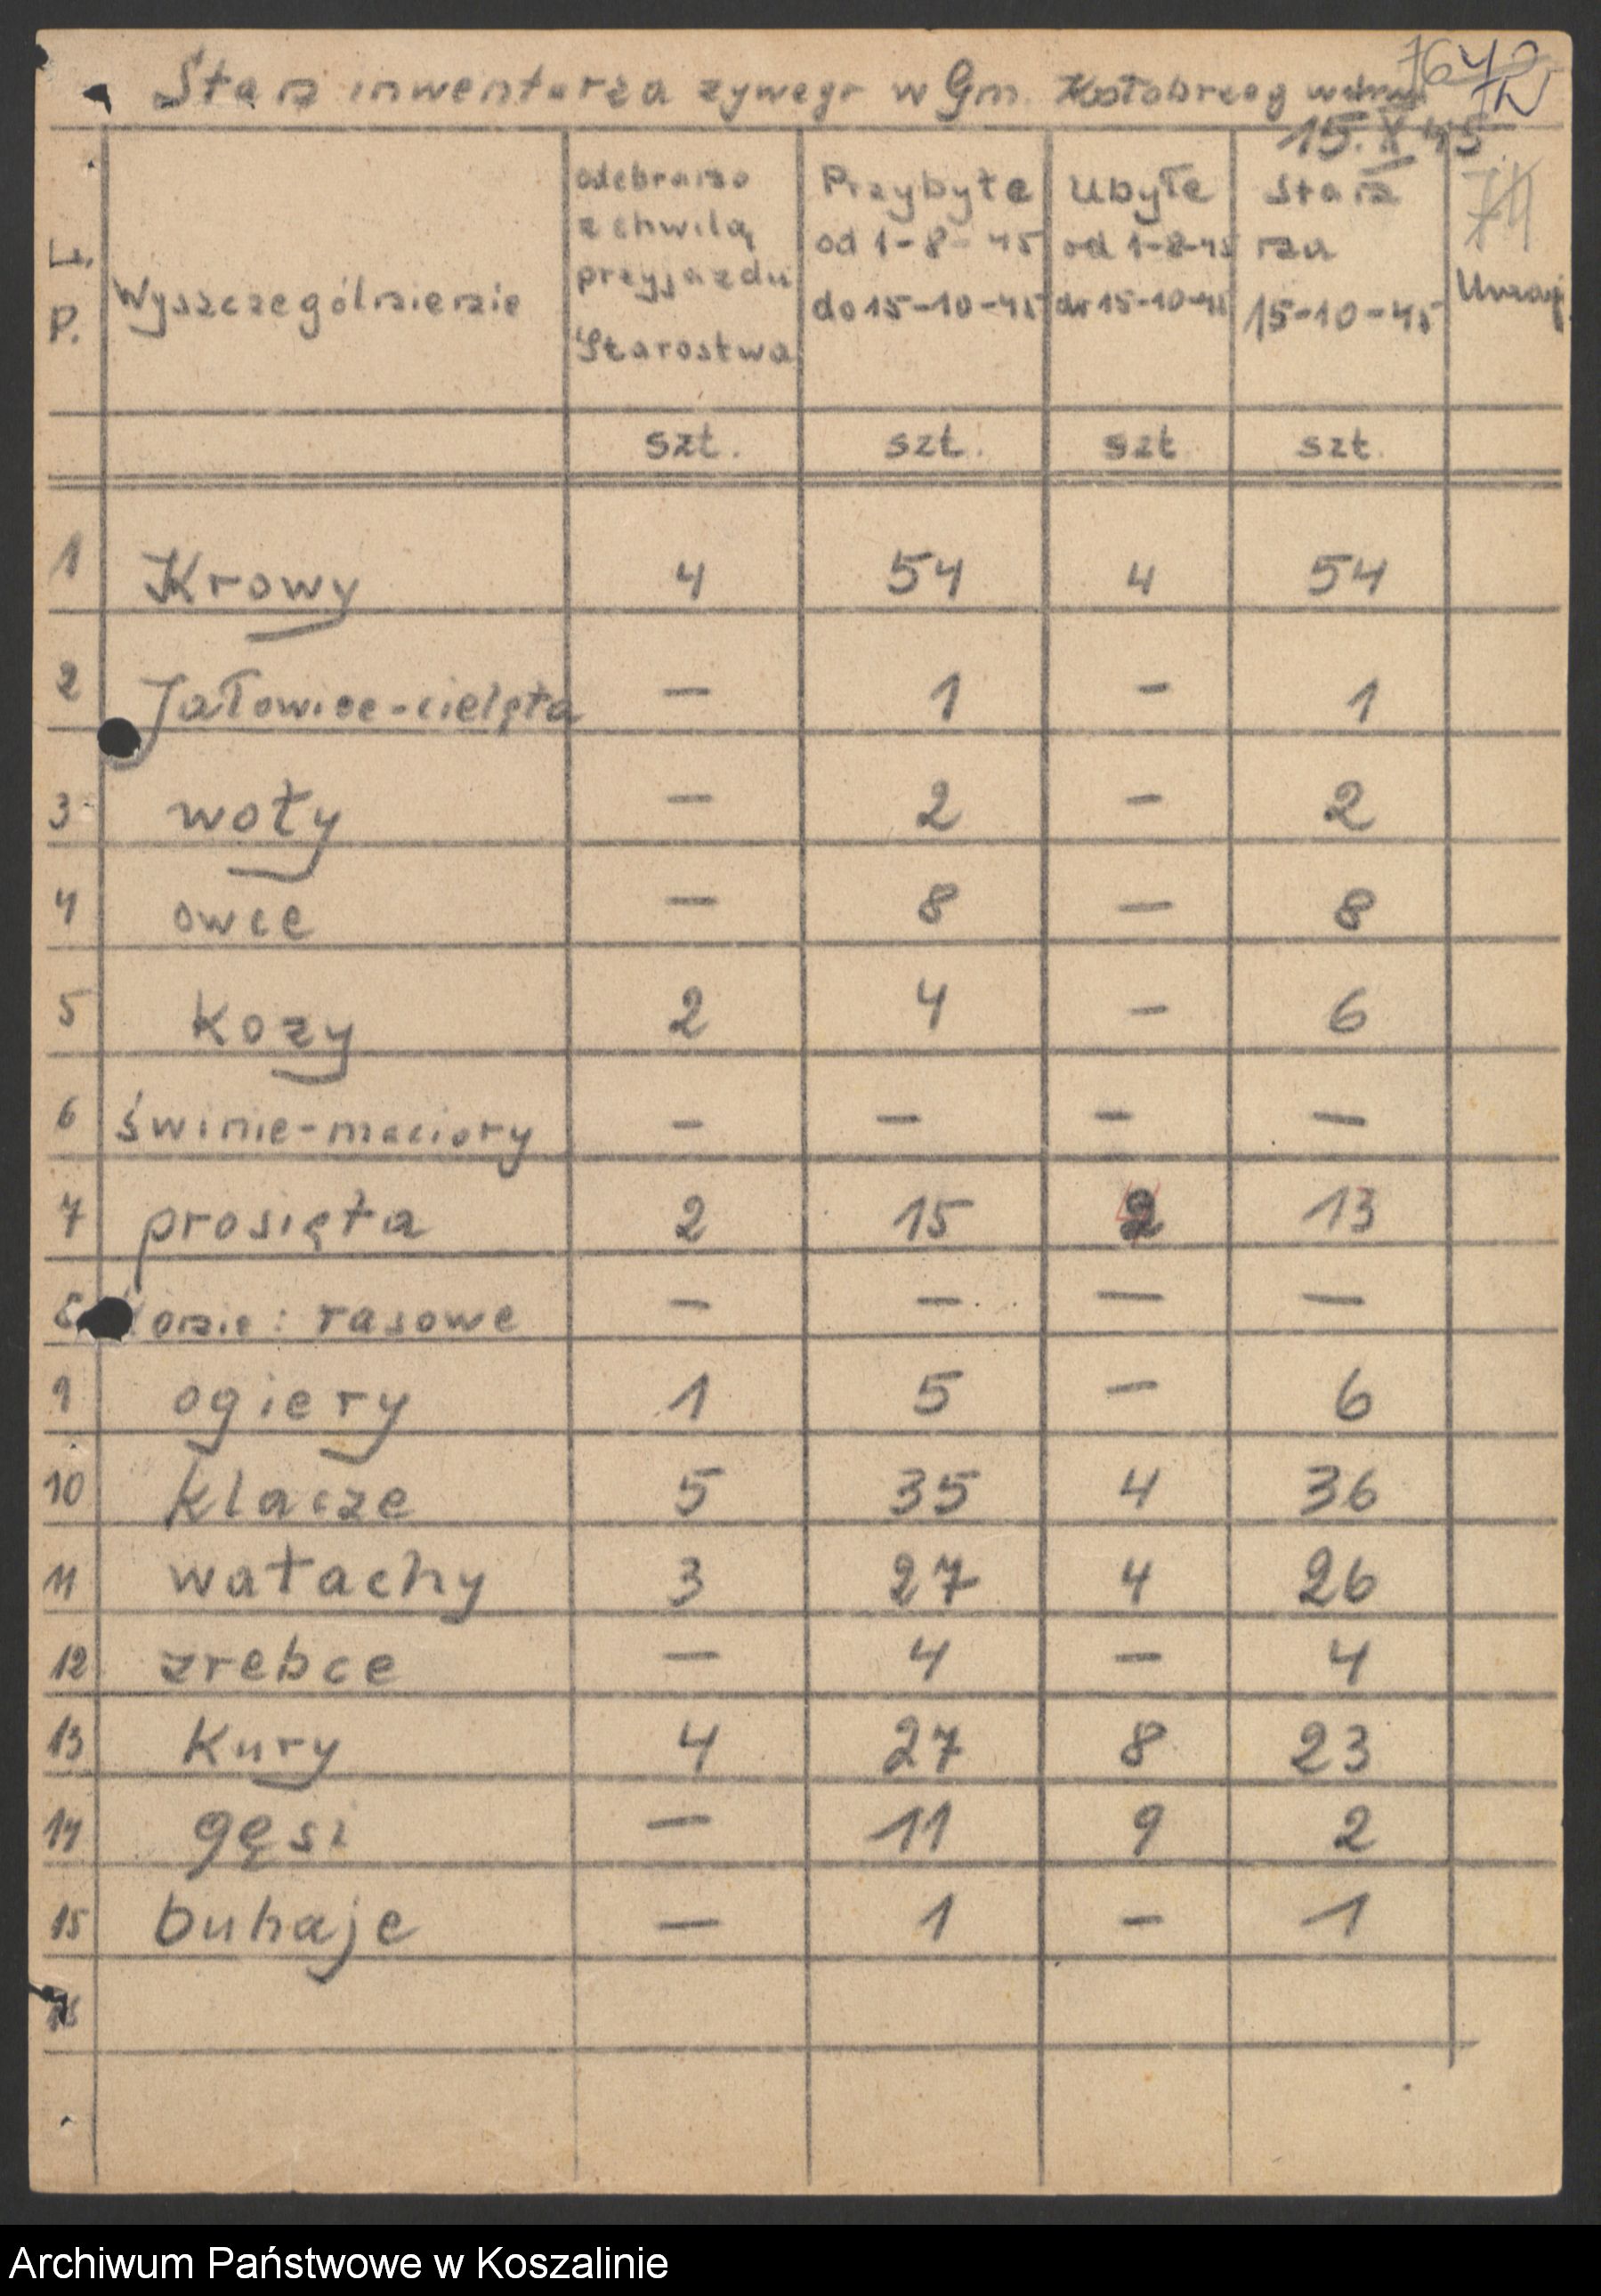 Stan inwentarza zywego w Gm. Kołobrzeg
15.X 45
L. P. Wyszczególnienie odebrano z chwilą przyjazdu Starostwa Przybyłe od 1-8-45 do 15-10-45 Ubyłe od 1-8-45 do 15-10-45 Stan na 15-10-45 Uwagi
szt. szt. szt szt.
1 Krowy 4 54 4 54
2 Jałowice-cielęta — 1 - 1
3 woły — 2 - 2
4 owce — 8 — 8
5 Kozy 2 4 - 6
6 świnie-maciory - — - —
7 prosięta 2 15 13
8 Konie: rasowe — — — —
9 ogiery 1 5 — 6
10 klacze 5 35 4 36
11 wałachy 3 27 4 26
12 zrebce — 4 — 4
13 Kury 4 27 8 23
14 gęsi — 11 9 2
15 buhaje — 1 - 1
16
Archiwum Państwowe w Koszalinie